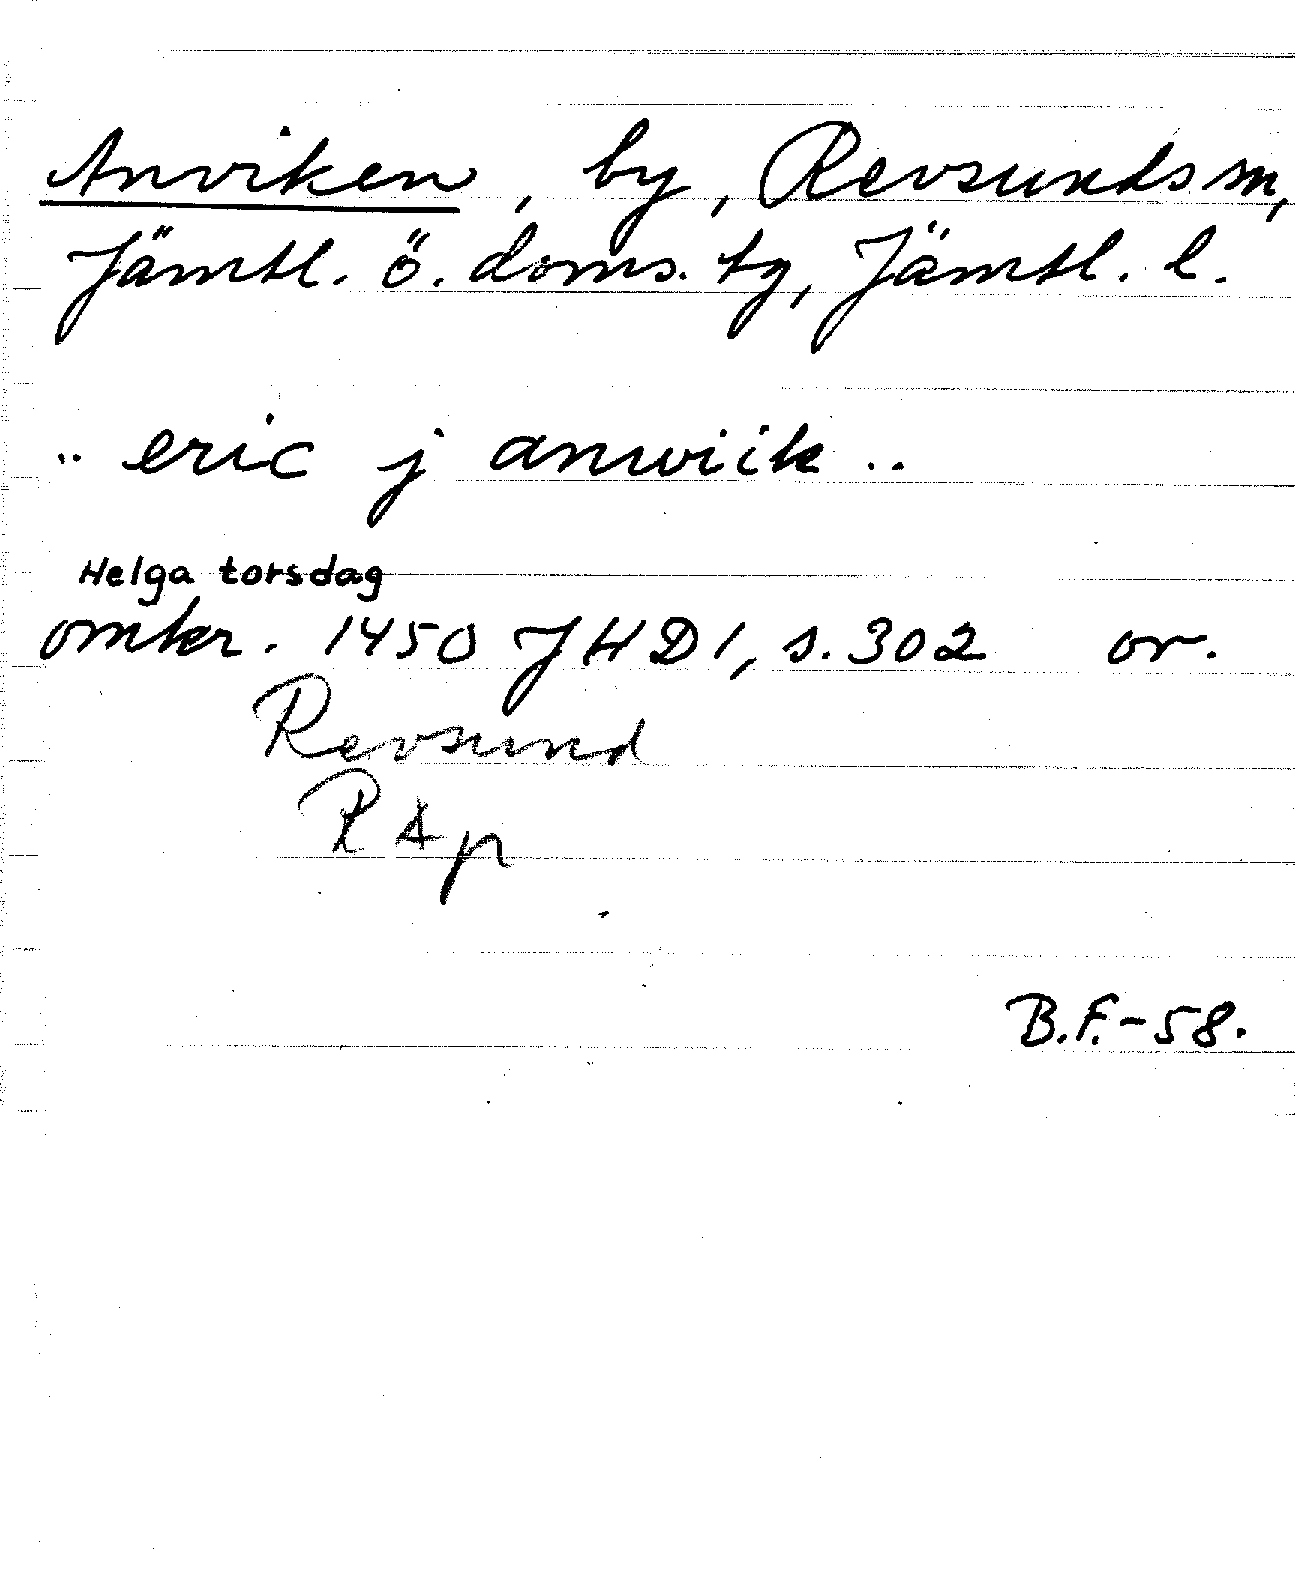 Anviken, by, Revsunds sn,
Jämtl. ö. doms. tg, Jämtl. l.
.. eric j anwiik ..
Helga torsdag
omkr. 1450 JHD 1, s. 302 or.
Revsund
RAp
B.F.-58.